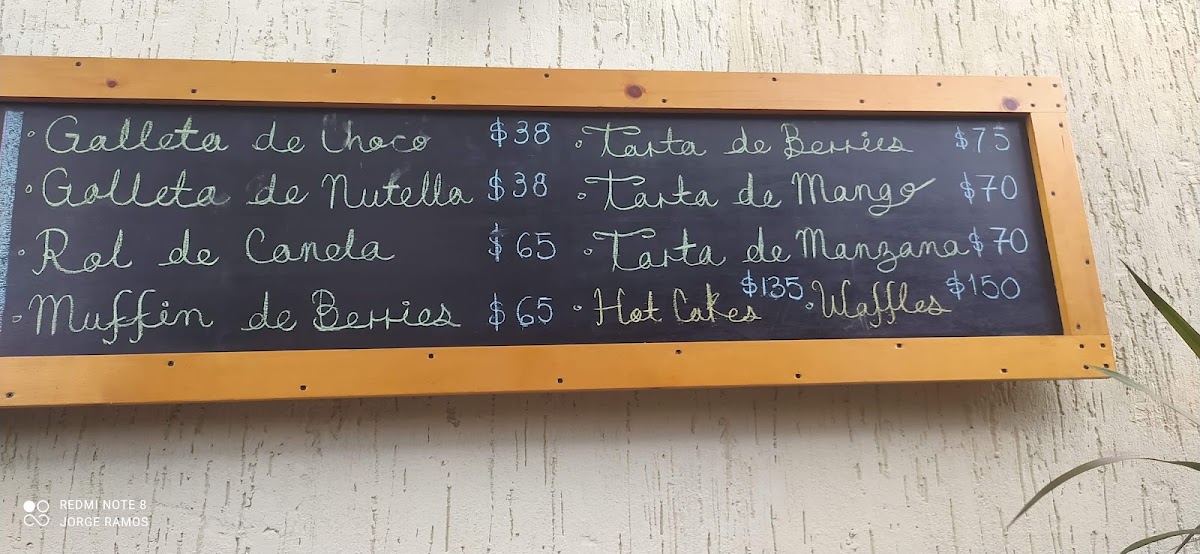 · Galleta de Choco $38
· Galleta de Nutella $38
· Rol de Canela $65
· Muffin de Berries $65
· Tarta de Berries $75
· Tarta de Mango $70
· Tarta de Manzana $70
· Hot Cakes $135 · Waffles $150
REDMI NOTE 8
JORGE RAMOS